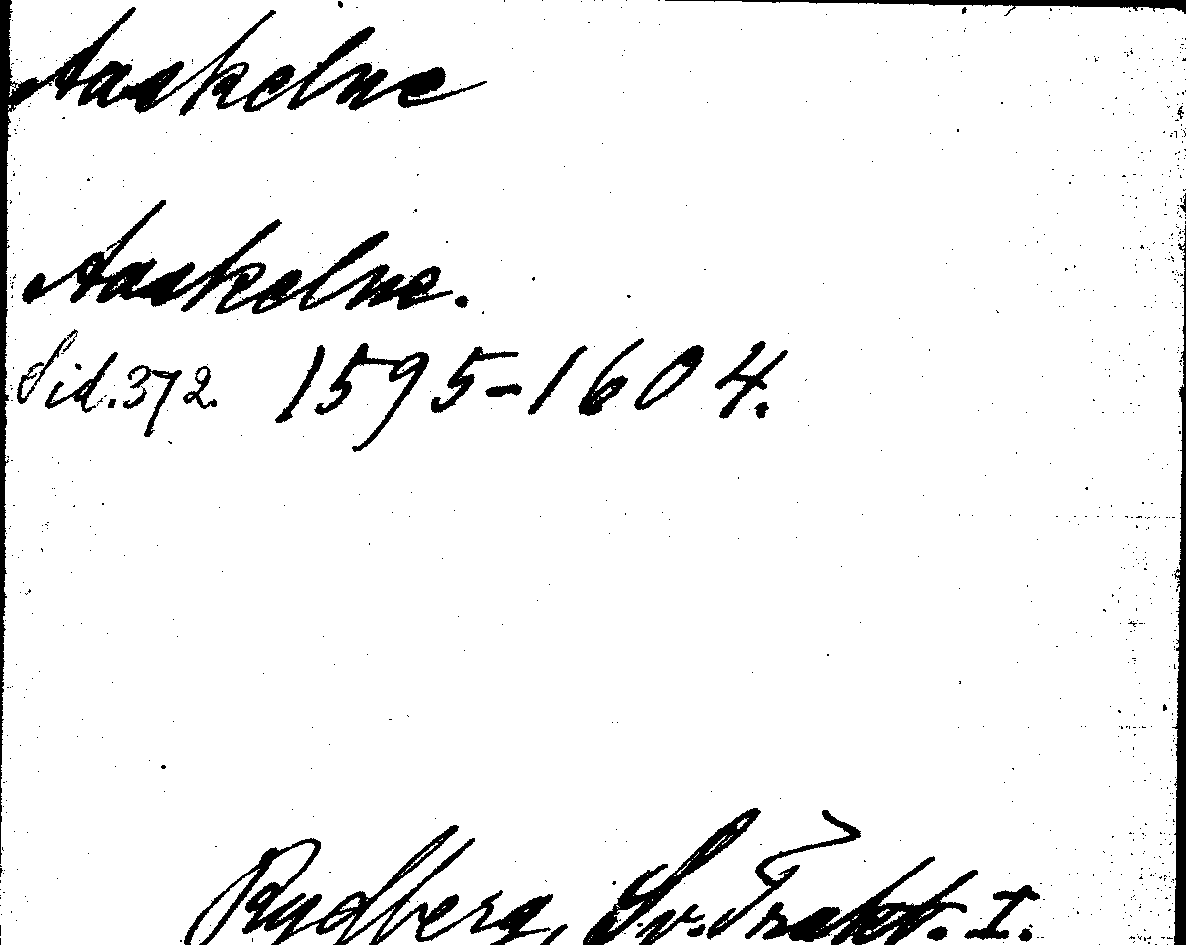 Aaskelne
Aaskelne.
Sid. 372. 1595-1604.
Rydberg, Sv. Trakt. I.